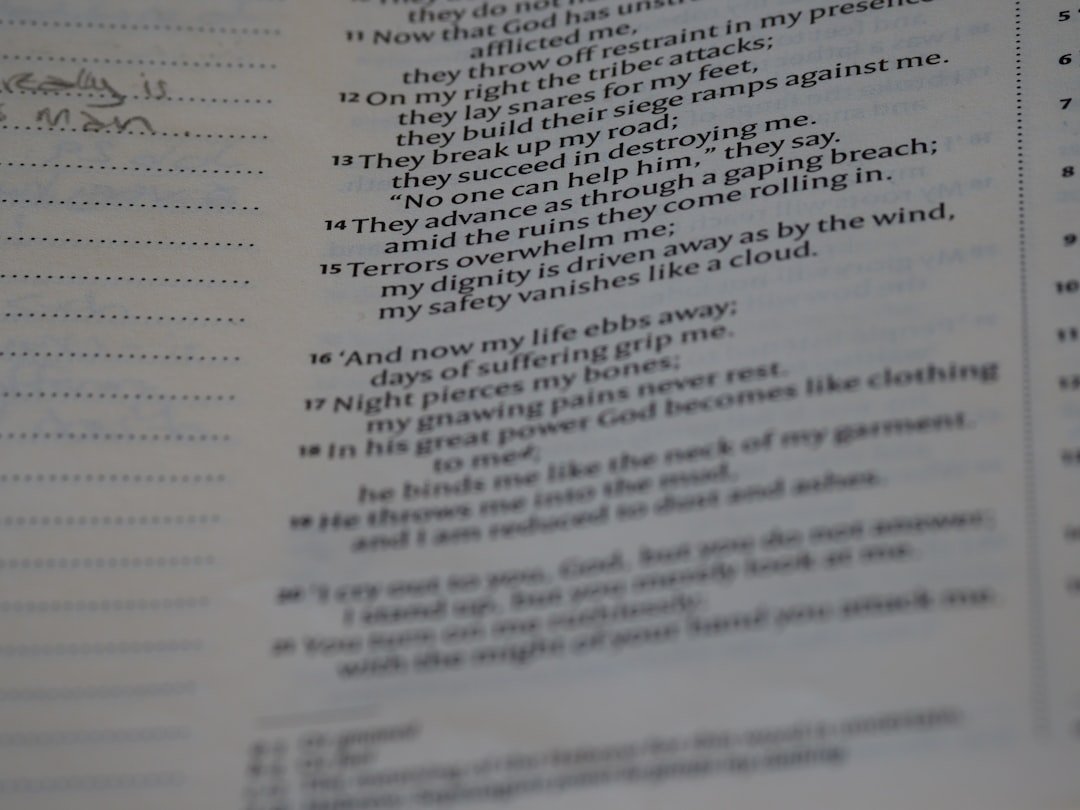 really is
man.
they do not
11 Now that God has unstr
afflicted me,
they throw off restraint in my presence
12 On my right the tribeᶜ attacks;
they lay snares for my feet,
they build their siege ramps against me.
13 They break up my road;
they succeed in destroying me.
“No one can help him,” they say.
14 They advance as through a gaping breach;
amid the ruins they come rolling in.
15 Terrors overwhelm me;
my dignity is driven away as by the wind,
my safety vanishes like a cloud.
16 ‘And now my life ebbs away;
days of suffering grip me.
17 Night pierces my bones;
my gnawing pains never rest.
18 In his great power God becomes like clothing
to meᵈ;
he binds me like the neck of my garment.
19 He throws me into the mud,
and I am reduced to dust and ashes.
20 ‘I cry out to you, God, but you do not answer;
I stand up, but you merely look at me.
21 You turn on me ruthlessly;
with the might of your hand you attack me.
5
6
7
8
9
10
11